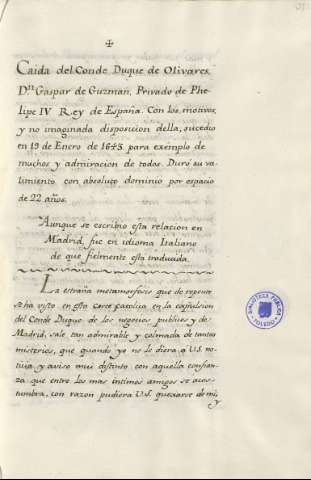 ✠
Caida del Conde Duque de Olivares,
Dⁿ Gaspar de Guzman, Privado de Phe-
lipe IV Rey de España. Con los motivos,
y no imaginada disposicion della, sucedio
en 19 de Enero de 1643 para exemplo de
muchos y admiracion de todos. Durò su va-
limiento con absoluto dominio por espacio
de 22 años.
Aunque se escribio esta relacion en
Madrid, fue en idioma Italiano
de que fielmente esta traducida.
La estraña metamorfosis que de repente
se ha visto en esta corte catolica en la expulsion
del Conde Duque de los negocios publicos y de
Madrid, sale tan admirable y colmada de tantos
misterios, que quando yo no le diera a U.S. no-
ticia, y aviso mui distinto con aquella confian-
za que entre los mas intimos amigos se acos-
tumbra, con razon pudiera U.S. quexarse de mi,
y
BIBLIOTECA PUBLICA
TOLEDO